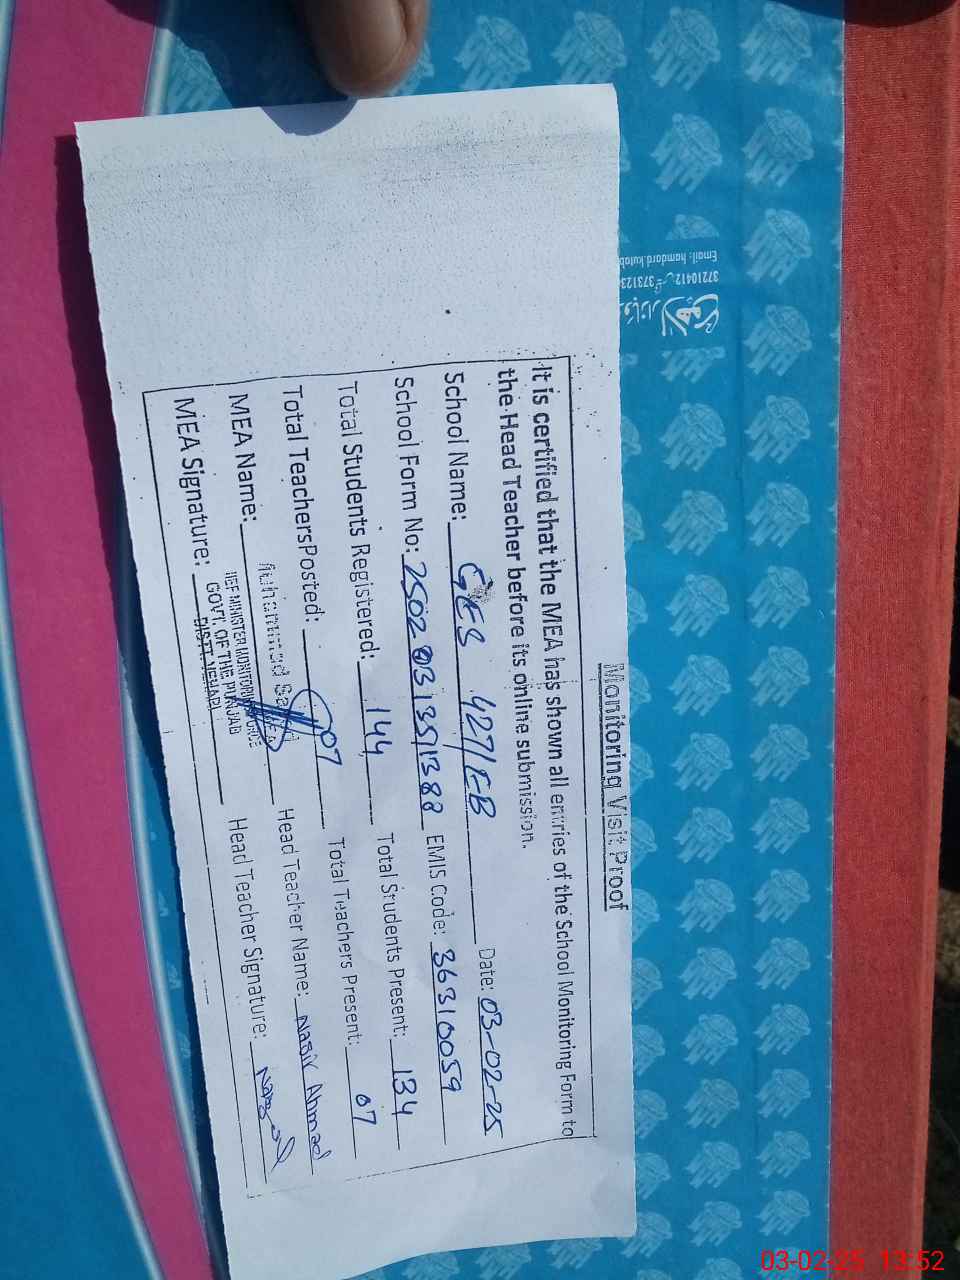 Monitoring Visit Proof
It is certified that the MEA has shown all entries of the School Monitoring Form to
the Head Teacher before its online submission.
School Name: GES 427/EB Date: 03-02-25
School Form No: 2502031351388 EMIS Code: 36310059
Total Students Registered: 144 Total Students Present: 134
Total TeachersPosted: 07 Total Teachers Present: 07
MEA Name: Muhammad Head Teacher Name: Nasir Ahmad
MEA Signature: Head Teacher Signature:
MINISTER MONITORING
GOVT. OF THE PUNJAB
DISTT. VEHARI
37210412
Email: hamdard.kutab
03-02-25 13:52